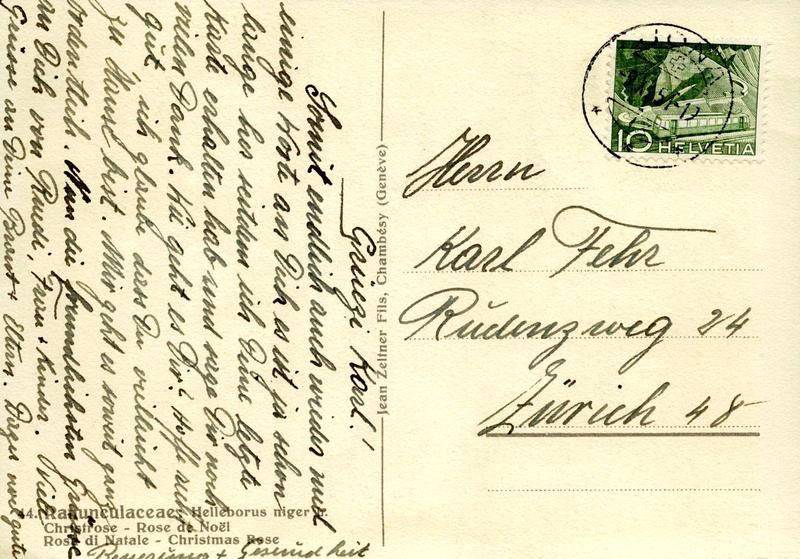 Grüezi Karl!
Somit endlich auch wieder mal
einige Worte an Dich es ist ja schon
lange her seitdem ich Deine letzte
Karte erhalten hab und sage Dir noch
vielen Dank. Wie geht es Dir? Hoffe sehr
gut, ich glaube dass Du vielleicht
zu Hause bist. Mir geht es soweit ganz
ordentlich. Nun die freundlichsten Grüsse
an Dich von Ruedi, Frau + Kinder. Viele
Grüsse an Deine Braut + Eltern. Dages noch gute
Besserung + Gesundheit
44. Ranunculaceae: Helleborus niger L.
Christrose - Rose de Noël
Rosa di Natale - Christmas Rose
Jean Zeltner Fils, Chambésy (Genève)
10 HELVETIA
Herrn
Karl Fehr
Rüdenzweg 24
Zürich 48